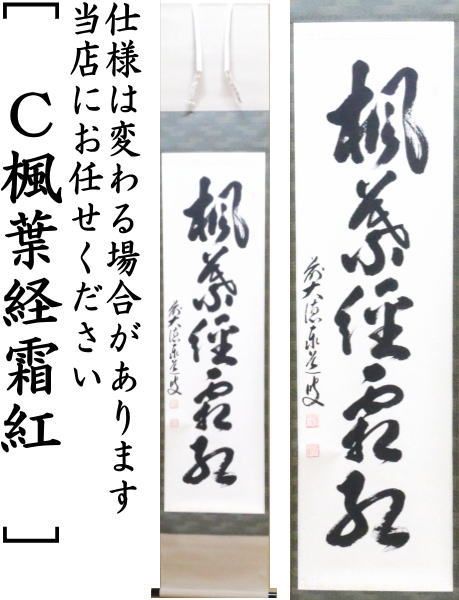 仕様は変わる場合があります
当店にお任せください
[C楓葉経霜紅]
楓葉經霜紅
前大徳
楓葉經霜紅
前大徳